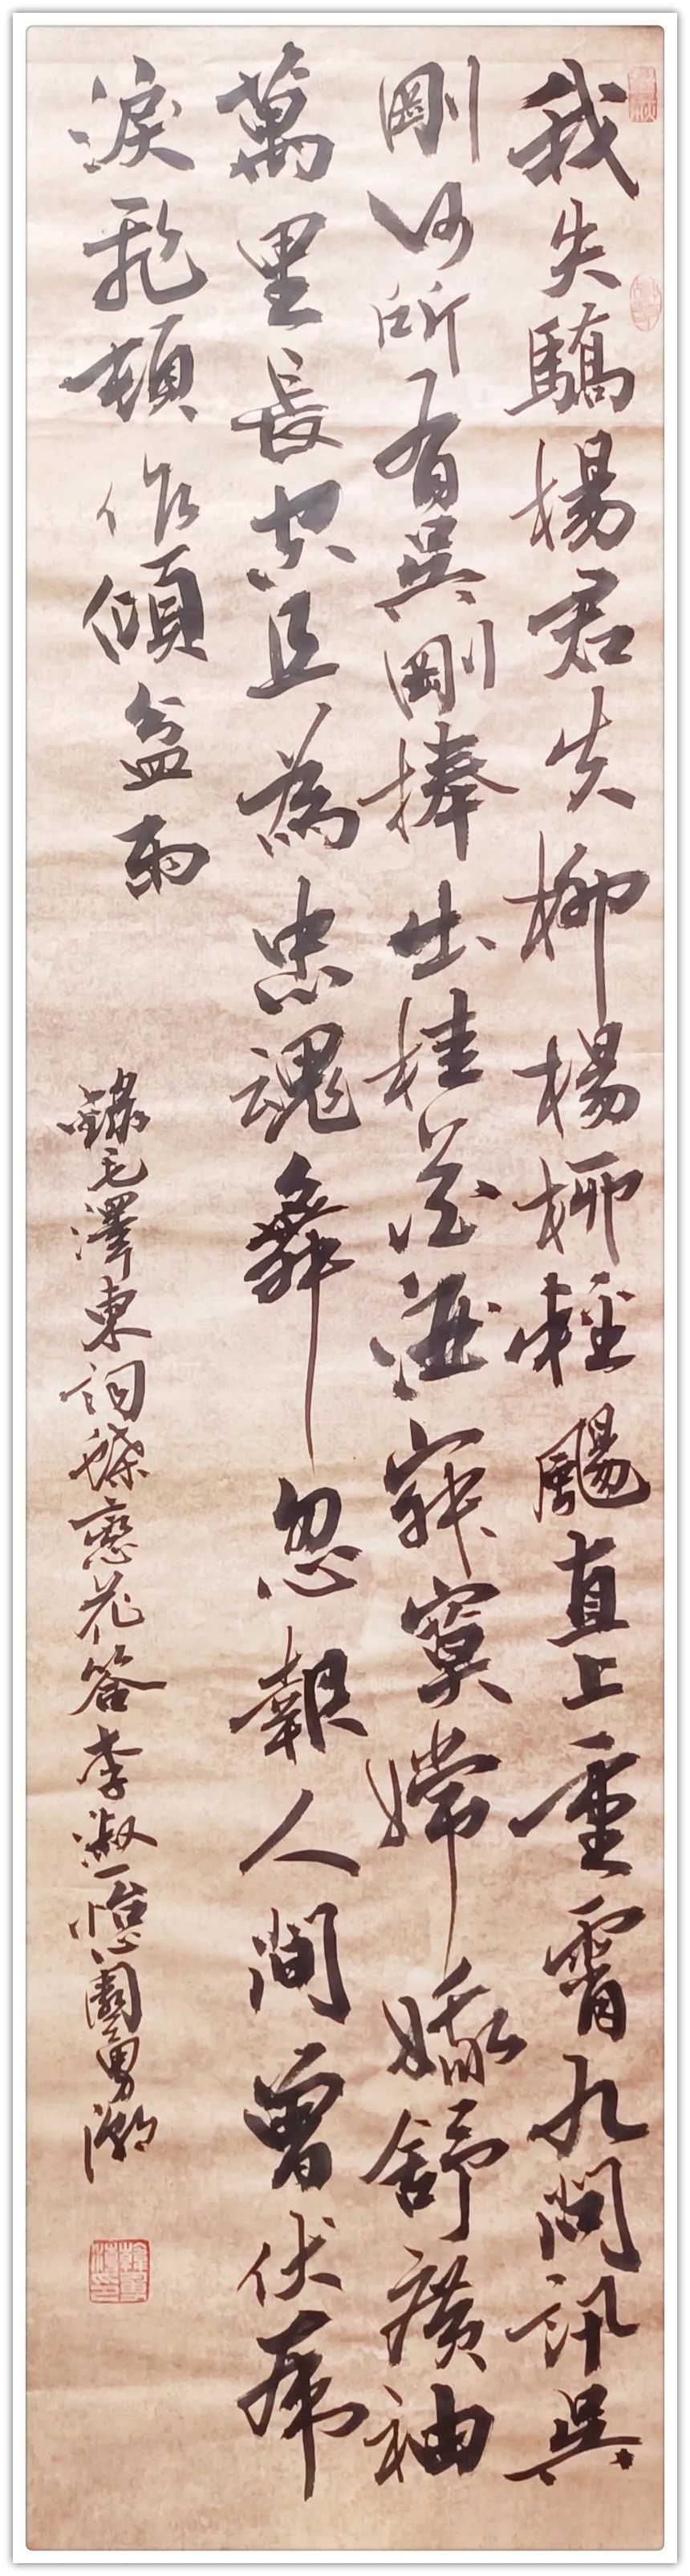 我失驕楊君失柳楊柳輕颺直上重霄九問訊吳
剛何所有吳剛捧出桂花酒寂寞嫦娥舒廣袖
萬里長空且為忠魂舞忽報人間曾伏虎
淚飛頓作傾盆雨
錄毛澤東詞蝶戀花答李淑一怡園勇